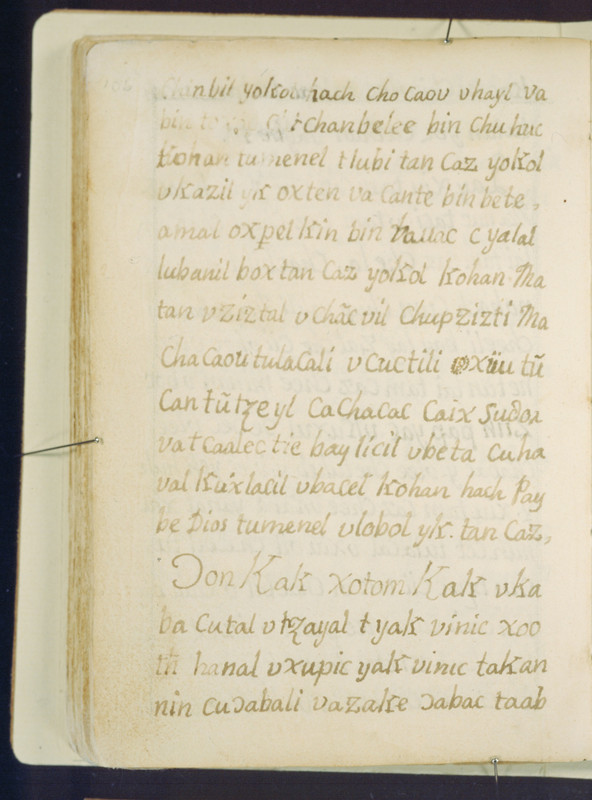 Chanbil yokol hach chocaou vhayl va
bin chanbelee bin chuhuc
kohan tumenel tlubi tan Caz yokol
vkazil yk oxten va Cante bin bete,
amal oxpel kin bin hauac c yalal
lubanil boxtan Caz yokol kohan Ma
tan vziztal vchãcvil chupzizti Ma
chacaou tulacali vcuctili oxüu tũ
can tũtzeyl Cachacac Caix Sudor
vatcaalec tie baylicil vbeta cuha
val kuxlacil vbacel kohan hach Pay
be Dios tumenel vlobol yk. tan Caz,
Ɔon Kak xotom Kak vka
ba Cutal vtzayal t yak vinic xoo
hanal vxupic yak vinic takan
nin cuɔabali vazake ɔabac taab